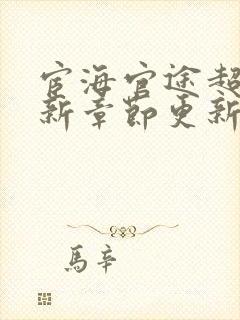 宦海官途超
新章节更新
馬辛